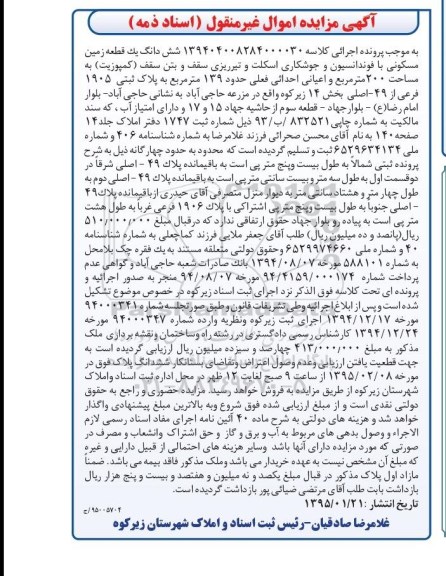 آگهی مزایده اموال غیرمنقول (اسناد ذمه)
به موجب پرونده اجرائی کلاسه ۱۳۹۴۰۴۰۰۸۲۸۴۰۰۰۰۳۰ شش دانگ یك قطعه زمین
مسکونی با فوندانسیون و جوشکاری اسکلت و تیرریزی سقف و بتن سقف (کمپوزیت) به
مساحت ۲۰۰مترمربع و اعیانی احداثی فعلی حدود ۱۳۹ مترمربع به پلاک ثبتی ۱۹۰۵
فرعی از ۴۹-اصلی بخش ۱۴ زیرکوه واقع در مزرعه حاجی آباد به نشانی حاجی آباد- بلوار
امام رضا(ع) - بلوار جهاد - قطعه سوم از حاشیه جهاد ۱۵ و ۱۷ و دارای امتیاز آب ، که سند
مالکیت به شماره چاپی ۸۳۲۵۲۱ /ب/۹۳ ذیل شماره ثبت ۱۷۴۷ دفتر املاک جلد۱۴
صفحه۱۴۰ به نام آقای محسن صحرائی فرزند غلامرضا به شماره شناسنامه ۴۰۶ و شماره
ملی ۶۵۲۹۶۳۴۱۳۴ ثبت و تسلیم گردیده است که محدود به حدود چهارگانه ذیل به شرح
پرونده ثبتی شمالاً به طول بیست وپنج متر پی است به باقیمانده پلاک ۴۹ - اصلی شرقا در
دوقسمت اول به طول سه متر و بیست سانتی متر پی است به باقیمانده پلاک ۴۹ - اصلی دوم به
طول چهار متر و هشتاد سانتی متر به دیوار منزل متصرفی آقای حیدری از باقیمانده پلاک۴۹
- اصلی جنوباً به طول بیست وپنج متر پی اشتراکی با پلاک ۱۹۰۶ فرعی غرباً به طول هشت
متر پی است به پیاده رو بلوار جهاد حقوق ارتفاقی ندارد که در قبال مبلغ ۵۱۰/۰۰۰/۰۰۰
ریال(پانصد و ده میلیون ریال) طلب آقای جعفر ملایی فرزند کماجعلی به شماره شناسنامه
۴۰ و شماره ملی ۶۵۲۹۹۷۴۶۶۰ وحقوق دولتی متعلقه مستند به یك فقره چک بلامحل
به شماره ۵۸۸۱۰۱ مورخه ۱۳۹۴/۰۸/۰۷ بانك صادرات شعبه حاجی آباد و گواهی عدم
پرداخت شماره ۹۴/۴۱۵۹/۰۰۰۱۷۴ مورخه ۹۴/۰۸/۰۷ منجر به صدور اجرائیه و
پرونده ای تحت کلاسه فوق الذکر نزد اجرای ثبت اسناد زیرکوه در خصوص موضوع تشکیل
شده است و پس از ابلاغ اجرائیه وطی تشریفات قانونی وطبق صورتجلسه شماره ۹۴۰۰۰۳۴۱
مورخه ۱۳۹۴/۱۲/۱۷ اجرای ثبت زیرکوه ونظریه وارده شماره ۹۴۰۰۰۳۴۷ مورخه
۱۳۹۴/۱۲/۲۴ کارشناس رسمی دادگستری در رشته راه وساختمان ونقشه برداری ملک
مذکور به مبلغ ۴۱۳/۰۰۰/۰۰۰ چهارصد و سیزده میلیون ریال ارزیابی گردیده است به
جهت قطعیت یافتن ارزیابی وعدم وصول اعتراض وتقاضای بستانکار ششدانگ پلاک فوق در
مورخه ۱۳۹۵/۰۲/۰۸ از ساعت ۹ صبح لغایت ۱۲ ظهر در محل اداره ثبت اسناد واملاک
شهرستان زیرکوه از طریق مزایده به فروش خواهد رسید. مزایده حضوری و راجع به حقوق
دولتی نقدی است و از مبلغ ارزیابی شده فوق شروع وبه بالاترین مبلغ پیشنهادی واگذار
خواهد شد و هزینه های دولتی به شرح ماده ۴۰ آئین نامه اجرای مفاد اسناد رسمی لازم
الاجراء و وصول بدهی های مربوط به آب و برق و گاز و حق اشتراک وانشعاب و مصرف در
صورتی که مورد مزایده دارای آنها باشد وسایر هزینه های احتمالی از قبیل دارایی و غیره
که مبلغ آن مشخص نیست به عهده خریدار می باشد وملک مذکور فاقد بیمه می باشد. ضمناً
مازاد اول پلاک مذکور در قبال مبلغ یکصد و نه میلیون و هفتصد و بیست و پنج هزار ریال
بازداشت بابت طلب آقای مرتضی ضیائی پور بازداشت گردیده است.
تاریخ انتشار :۱۳۹۵/۰۱/۲۱
۹۵۰۰۵۷۰۲/ج
غلامرضا صادقیان-رئیس ثبت اسناد و املاک شهرستان زیرکوه